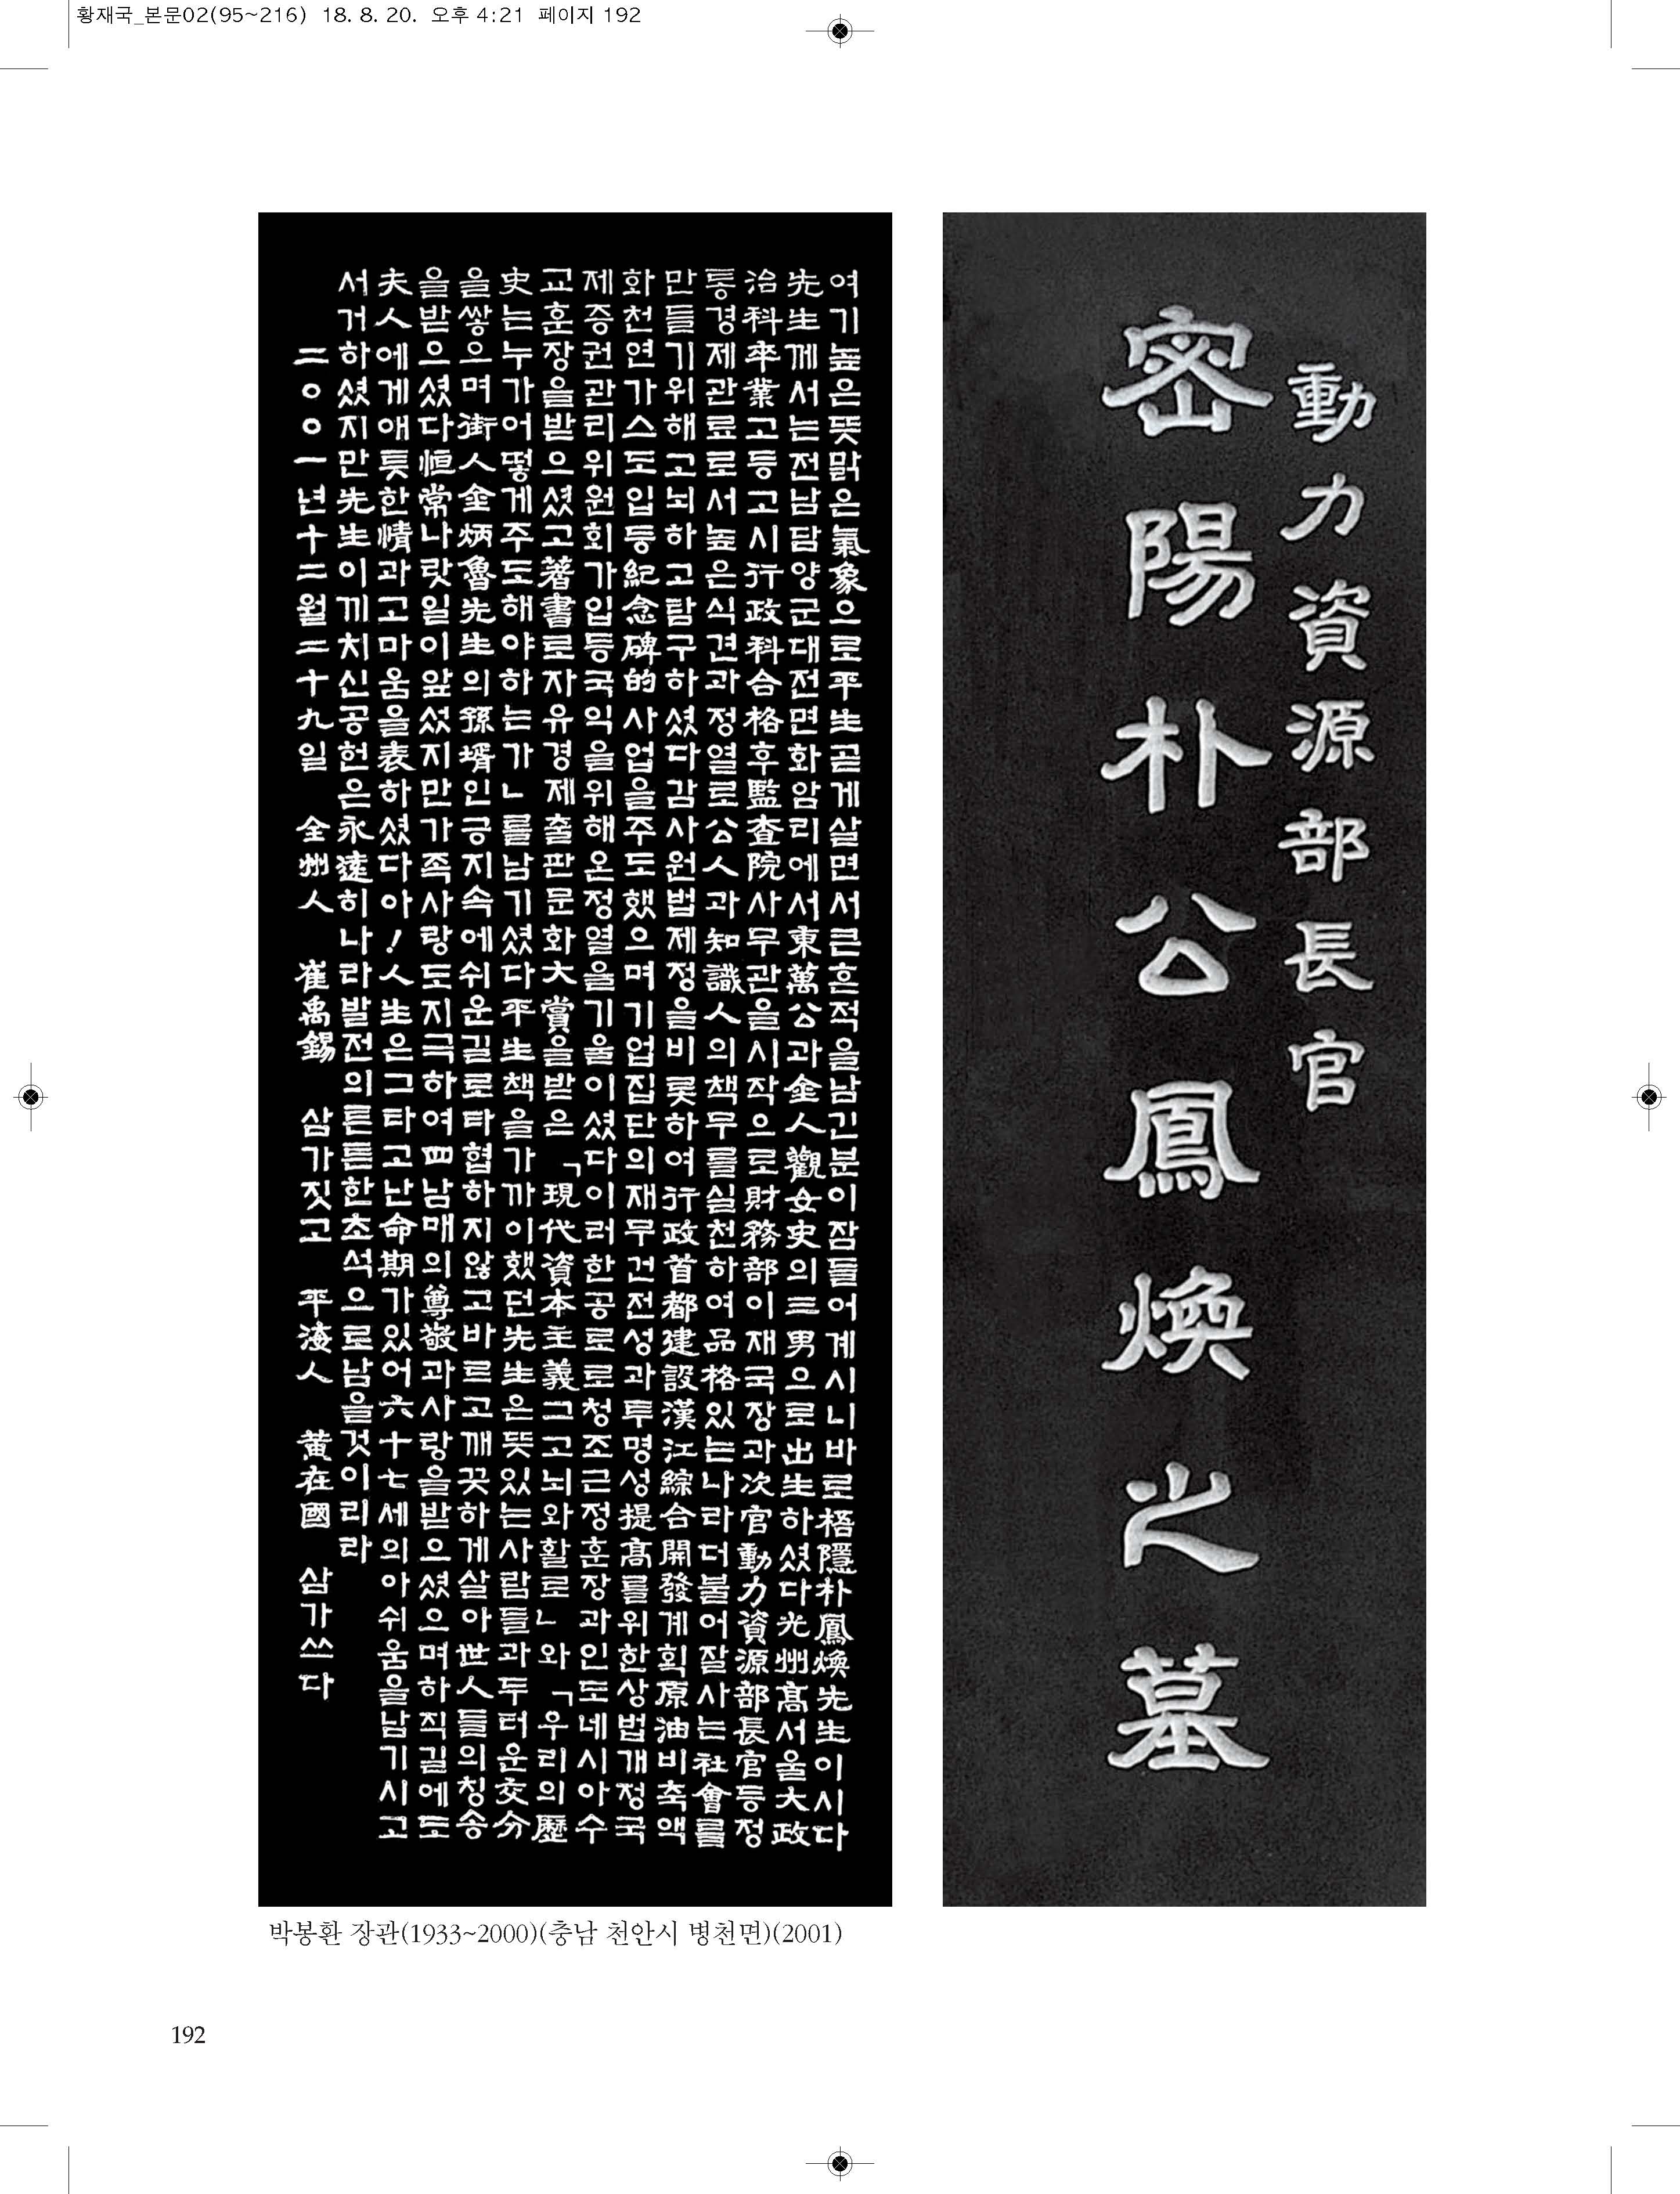 황재국_본문02(95~216) 18. 8. 20. 오후 4:21 페이지 192
動力資源部長官
密陽朴公鳳煥之墓
여기높은뜻맑은氣象으로平生곧게살면서큰흔적을남긴분이잠들어계시니바로梧隱朴鳳煥先生이시다
先生께서는전남담양군대전면화암리에서東萬公과金人觀女史의三男으로出生하셨다光州高서울大政
治科卒業고등고시行政科合格후監査院사무관을시작으로財務部이재국장과次官動力資源部長官등정
통경제관료로서높은식견과정열로公人과知識人의책무를실천하여品格있는나라더불어잘사는社會를
만들기위해고뇌하고탐구하셨다감사원법제정을비롯하여行政首都建設漢江綜合開發계획原油비축액
화천연가스도입등紀念碑的사업을주도했으며기업집단의재무건전성과투명성提高를위한상법개정국
제증권관리위원회가입등국익을위해온정열을기울이셨다이러한공로로청조근정훈장과인도네시아수
교훈장을받으셨고著書로자유경제출판문화大賞을받은「現代資本主義그고뇌와활로」와「우리의歷
史는누가어떻게주도해야하는가」를남기셨다平生책을가까이했던先生은뜻있는사람들과두터운交分
을쌓으며街人金炳魯先生의孫壻인긍지속에쉬운길로타협하지않고바르고깨끗하게살아世人들의칭송
을받으셨다恒常나랏일이앞섰지만가족사랑도지극하여四남매의尊敬과사랑을받으셨으며하직길에도
夫人에게애틋한情과고마움을表하셨다아!人生은그타고난命期가있어六十七세의아쉬움을남기시고
서거하셨지만先生이끼치신공헌은永遠히나라발전의튼튼한초석으로남을것이리라
二〇〇一년十二월二十九일 全州人 崔禹錫 삼가짓고 平海人 黃在國 삼가쓰다
박봉환 장관(1933~2000)(충남 천안시 병천면)(2001)
192